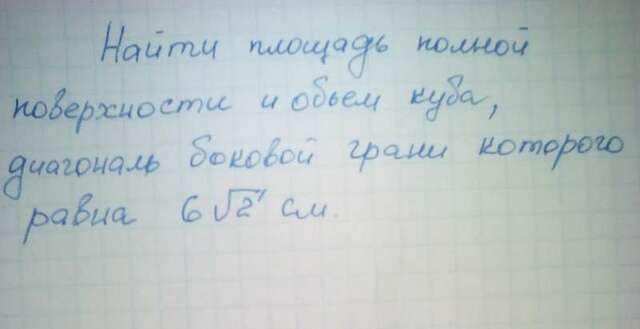 Найти площадь полной
поверхности и обьем куба,
диагональ боковой грани которого
равна 6√2 см.